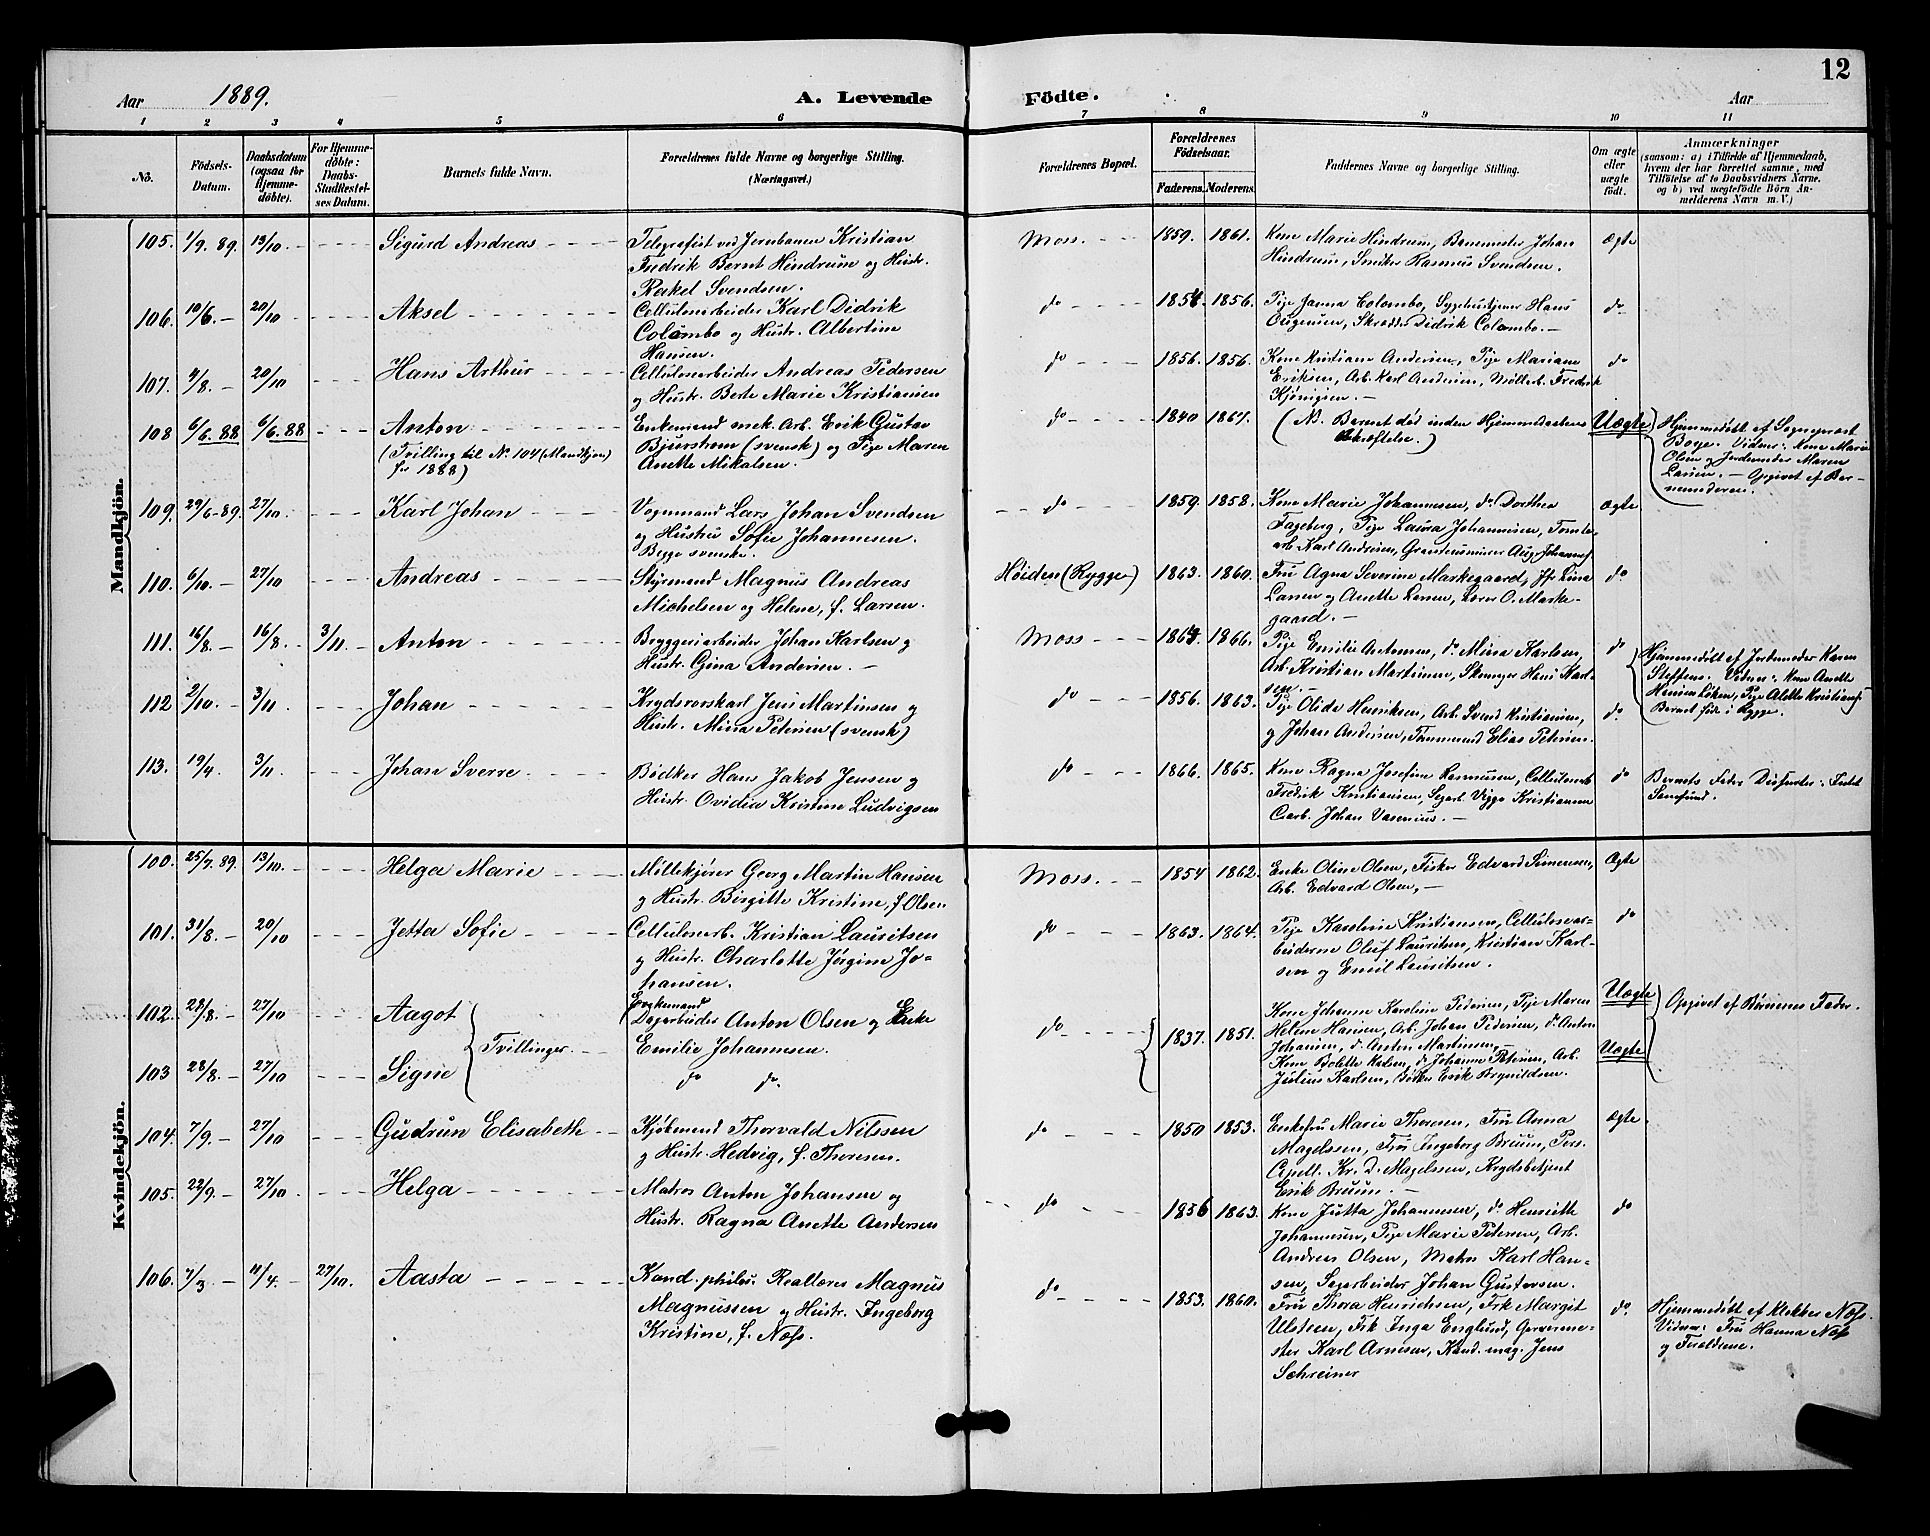 12
Aar 1889. A. Levende Födte. Aar
1 2 3 4 5 6 7 8 9 10 11
No.
Födsels-Datum.
Daabsdatum (ogsaa for Hjemmedöbte).
For Hjemmedöbte: Daabs-Stadfæstelses Datum.
Barnets fulde Navn.
Forældrenes fulde Navne og borgerlige Stilling. (Næringsvei.)
Forældrenes Bopæl.
Forældrenes Födselsaar.
Faderens. Moderens.
Faddernes Navne og borgerlige Stilling.
Om ægte eller uægte födt.
Anmærkninger
(saasom: a) i Tilfælde af Hjemmedaab, hvem der har forrettet samme, med Tilföielse af to Daabsvidners Navne. og b) ved uægtefödte Börn Anmelderens Navn m. V.)
Mandkjön.
105. 1/9. 89. 13/10 Sigurd Andreas
Telegrafist ved Jernbanen Kristian
Fredrik Bernt Hindrum og Hustr.
Rakel Svendsen.
Moss. 1859. 1861.
Kone Marie Hindrum, Banemester Johan
Hindrum, Snedker Rasmus Svendsen.
Ægte
106. 10/6. 20/10 Aksel
Cellulosearbeider Karl Didrik
Colombo og Hustr. Albertine
Hansen.
do 1854. 1856.
Pige Janna Colombo, Sygehustjener Hans
Eugensen, Skrædder Didrik Colombo.
do
107. 4/8. 20/10 Hans Arthur
Cellulosearbeider Andreas Pedersen
og Hustr. Berte Marie Kristiansen
do 1856. 1856.
Kone Kristiane Andersen, Pige Mariane
Eriksen, Arb. Karl Andersen, Møllerb. Fredrik
do
108 6/6. 88 6/6. 88 Anton
(Tvilling til No. 104 (Mandkjøn)
for 1888)
Enkemand mek. Arb. Erik Gustav
Bjurstrøm (svensk) og Pige Maren
Anette Mikalsen.
do 1840 1867.
(NB. Barnet død inden Hjemmedaabens
Bekræftelse.)
Uægte
Hjemmedøbt af Sogneprest
Boye. Vidner: Kone Marie
Olsen og Jordemoder Maren
Larsen. Opgivet af Barnemoderen.
109. 29/6-89. 27/10. Karl Johan
Vognmand Lars Johan Svendsen
og Hustru Sofie Johannesen.
Begge svenske.
do 1859. 1858.
Kone Marie Johannesen, do Dorthea
Fageberg, Pige Laura Johannesen, Tomtearb. Karl Andersen,
Ægte
110. 6/10. 27/10 Andreas
Styrmand Magnus Andreas
Michelsen og Helene, f. Larsen.
Høiden (Rygge) 1863. 1860.
Fru Agna Severine Markegaard, Jfr Lina
Larsen og Anette Larsen, Lærer O. Markegaard.
do
111. 16/8. 16/8. 3/11. Anton
Bryggeriarbeider Johan Karlsen og
Hustr. Gina Andersen.
Moss 1864. 1866.
Pige Emilie Antonsen, do Mina Karlsen,
Arb. Kristian Martinsen, Hans Karlsen.
do
Hjemmedøbt af Jordemoder Karen
Steffens. Vidner: Kone Anette
Hansen Løken, Pige Alette Kristians.
Barnet født i Rygge.
112 2/10. 3/11. Johan
Krydsrorskarl Jens Martinsen og
Hustr. Mina Petersen (svensk)
do 1856. 1863.
Pige Olide Henriksen, Arb. Svend Kristiansen,
og Johan Andersen, Tømmermd Elias Petersen.
do.
113. 19/4. 3/11. Johan Sverre
Bødker Hans Jakob Jensen og
Hustr. Ovidia Kristine Ludvigsen
do 1866. 1865.
Kone Ragna Josefine Rasmussen, Cellulosearb.
Fredrik Kristiansen, Sagarb. Viggo Kristiansen
Johan Vasenius.
do
Barnets Fader Dissenter: Luth.
Samfund.
Kvindekjön.
100. 25/7. 89. 13/10. Helga Marie
Møllekjører Georg Martin Hansen
og Hustr. Birgitte Kristine, f Olsen
Moss. 1854 1862.
Enke Oline Olsen, Fisker Edvard Simensen,
Arb. Edvard Olsen,
Ægte
101. 31/8. 20/10 Jetta Sofie
Cellulosearb. Kristian Lauritsen
og Hustr. Charlotte Jørgine Johansen.
do 1863. 1864.
Pige Karoline Kristiansen, Cellulosearbeiderne Oluf Lauritsen, Kristian Karlsen og Emil Lauritsen.
do
102. 28/8. 27/10. Aagot
103 28/8. 27/10 Signe
Tvillinger.
Enkemand
Dagarbeider Anton Olsen og Enke
Emilie Johannesen.
do do.
do 1837. 1851.
Kone Johanne Karoline Pedersen, Pige Maren
Helene Hansen, Arb. Johan Pedersen, do Anton
Johansen, do Anton Martinsen,
Kone Bolette Karlsen, do Johanne Petersen, Arb.
Julius Karlsen, Bødker Erik Brynildsen.
Uægte
Uægte
Opgivet af Børnenes Fader.
104. 7/9. 27/10. Gudrun Elisabeth
Kjøbmand Thorvald Nilssen
og Hustr. Hedvig, f. Thoresen.
do 1850 1853.
Enkefru Marie Thoresen, Fru Anna
Magelssen, Fru Ingeborg Bruun, Pers.
Capell. Kr. d. Magelssen, Krydsbetjent
Erik Bruun.
Ægte.
105. 22/9. 27/10 Helga
Matros Anton Johansen og
Hustr. Ragna Anette Andersen
do 1856 1863.
Kone Jutta Johannesen, do Henriette
Johannesen, Pige Marie Petersen, Arb.
Andreas Olsen, Matros Karl Hansen, Sagarbeider Johan Gustavsen.
do
106. 7/3. 11/4. 27/10. Aasta
Kand. philos. Reallærer Magnus
Magnussen og Hustr. Ingeborg
Kristine, f. Næss.
do 1853. 1860.
Fru Thora Henrichsen, Frk Margit
Ulsteen, Frk Inga Englund, Garvermester Karl Arnesen, Kand. mag. Jens
Schreiner
do.
Hjemmedøbt af Klokker Næss.
Vidner: Fru Hanna Næss
og Forældrene.